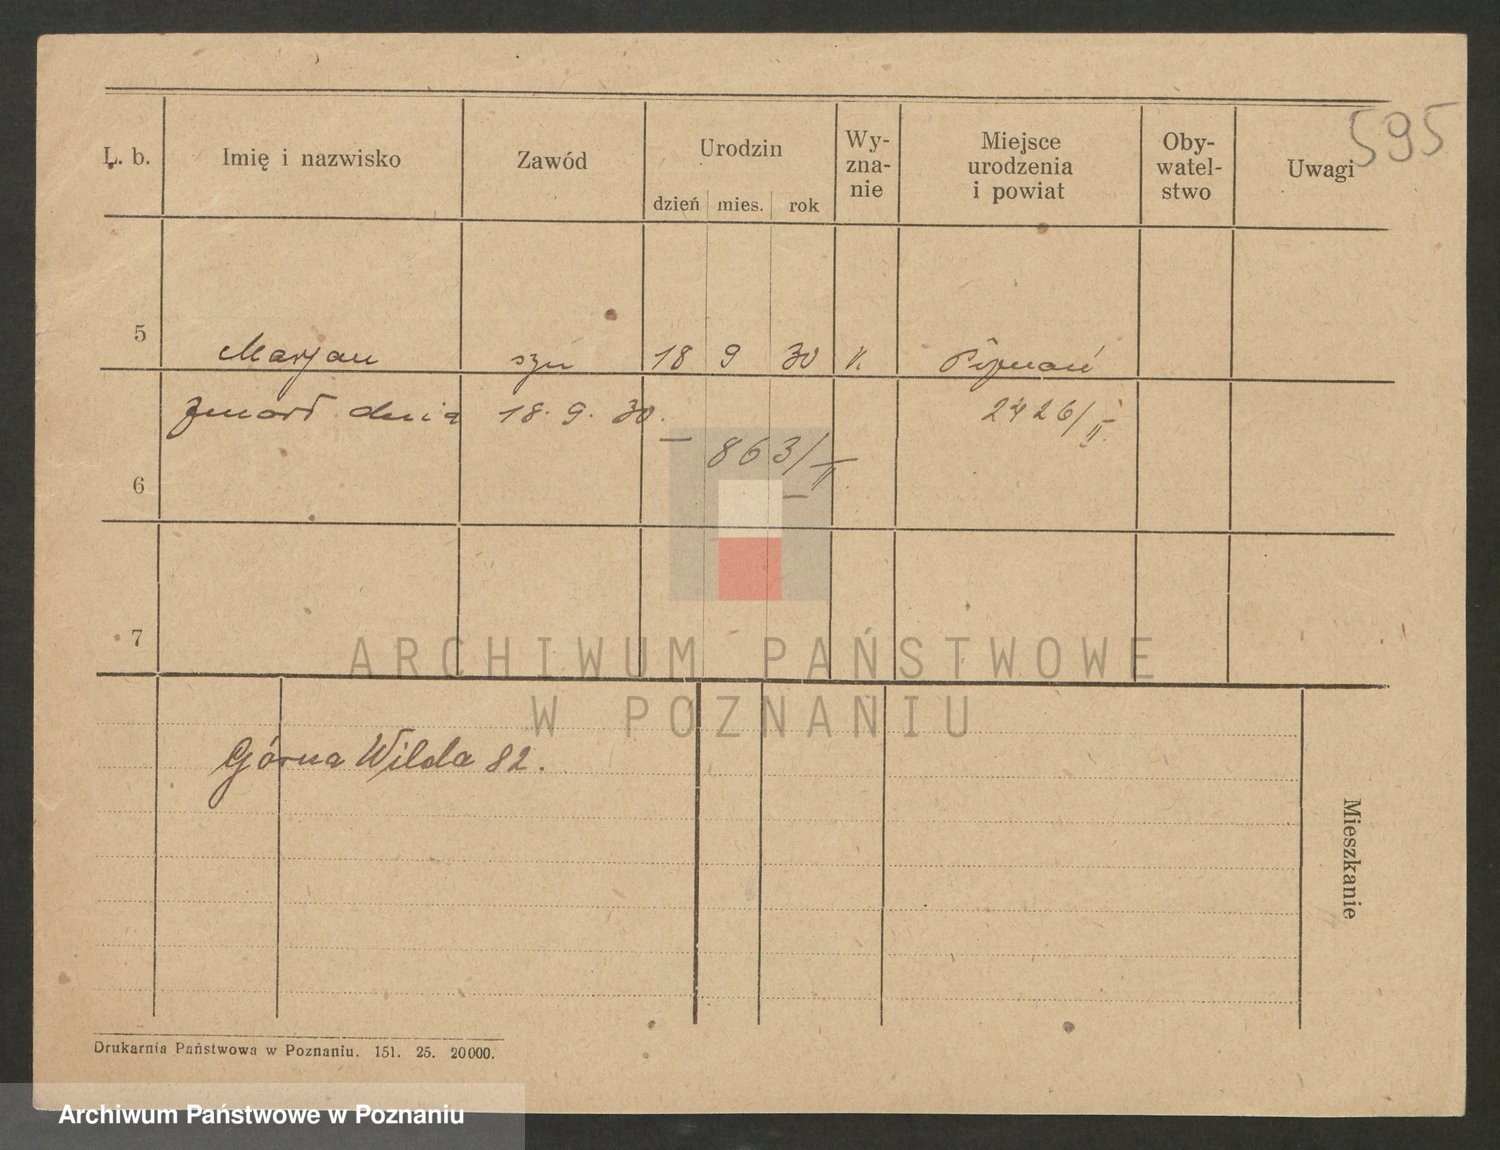 595
L. b. Imię i nazwisko Zawód Urodzin Wy- Miejsce Oby- Uwagi
zna- urodzenia watel-
nie i powiat stwo
dzień mies. rok
5 Marjan syn 18 9 30 k. Poznań
zmarł dnia 18. 9. 30. 2426/II.
863/II
6
7
ARCHIWUM PAŃSTWOWE
W POZNANIU
Górna Wilda 82.
Mieszkanie
Drukarnia Państwowa w Poznaniu. 151. 25. 20000.
Archiwum Państwowe w Poznaniu